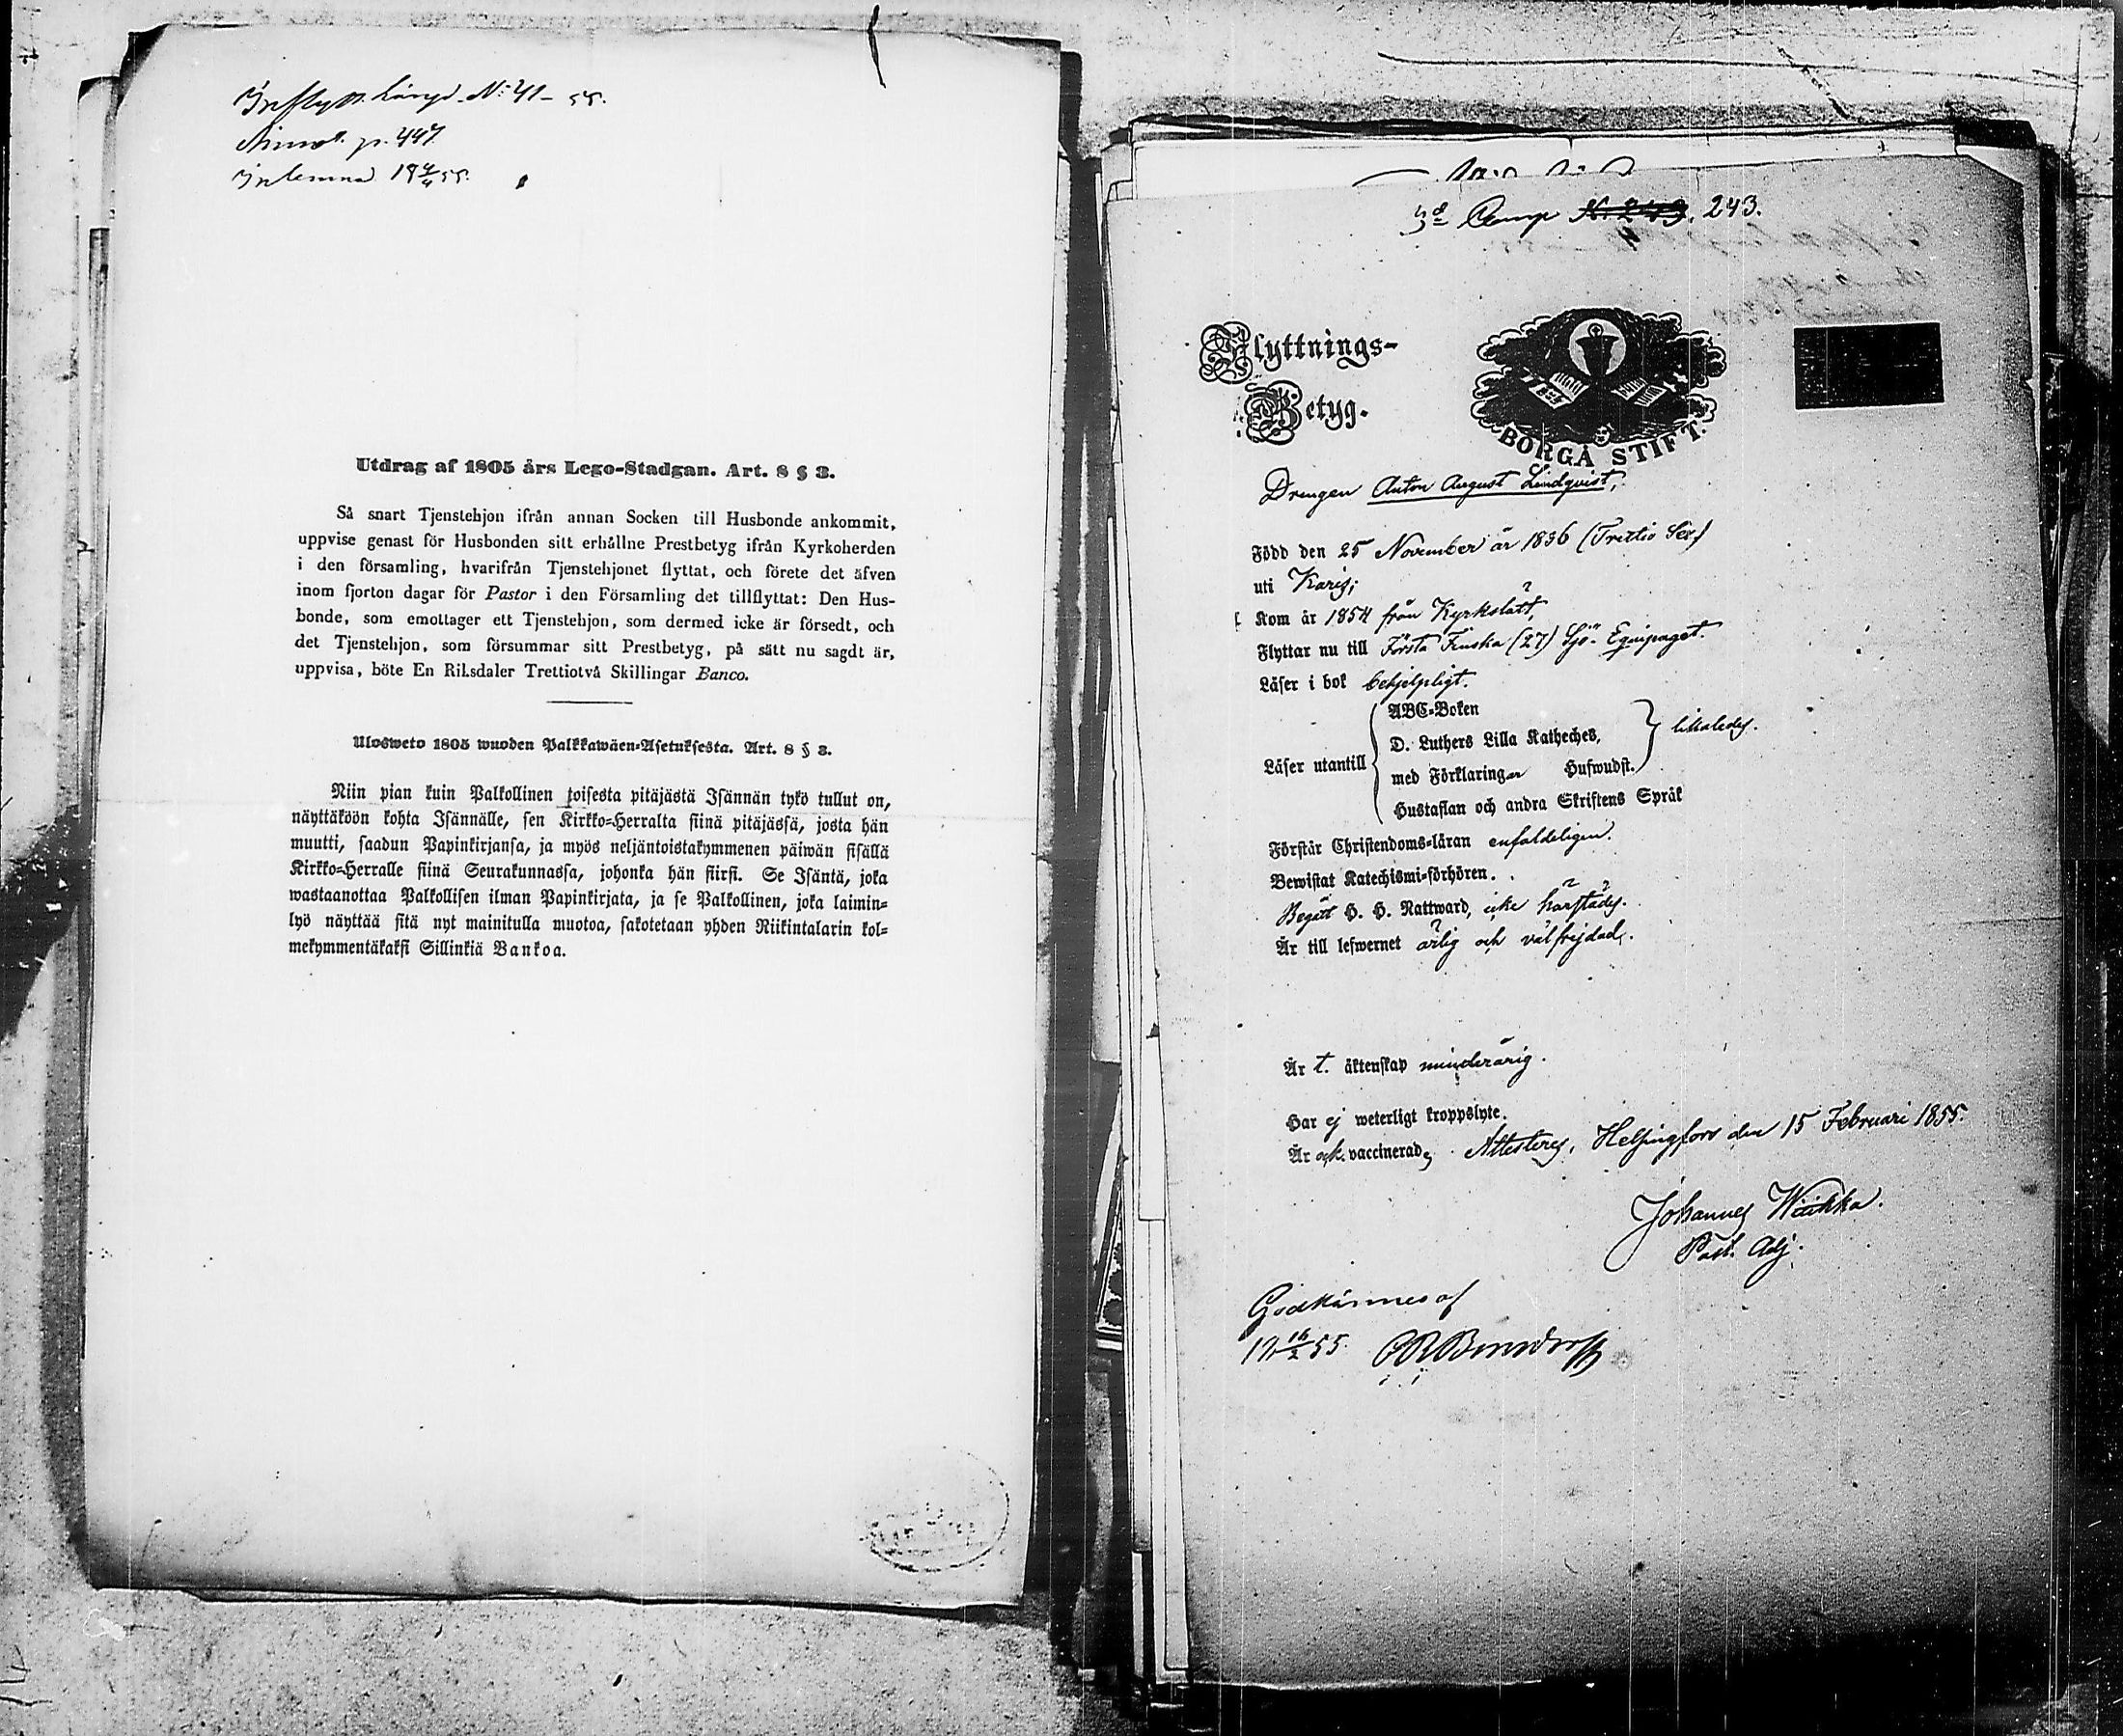 Inflytt. längd. N:o 41 - 55.
p. 447
Inlemnad 18 4/4 55.
Utdrag af 1805 års Lego-Stadgan. Art. 8 § 3.
Så snart Tjenstehjon ifrån annan Socken till Husbonde ankommit,
uppvise genast för Husbonden sitt erhållne Prestbetyg ifrån Kyrkoherden
i den församling, hvarifrån Tjenstehjonet flyttat, och förete det äfven
inom fjorton dagar för Pastor i den Församling det tillflyttat: Den Hus-
bonde, som emottager ett Tjenstehjon, som dermed icke är försedt, och
det Tjenstehjon, som försummar sitt Prestbetyg, på sätt nu sagdt är,
uppvisa, böte En Riksdaler Trettiotvå Skillingar Banco.
Ulosweto 1805 wuoden Palkkawäen-Asetuksesta. Art. 8 § 3.
Niin pian kuin Palkollinen toisesta pitäjästä Isännän tykö tullut on,
näyttäköön kohta Isännälle, sen Kirkko-Herralta siinä pitäjässä, josta hän
muutti, saadun Papinkirjansa, ja myös neljäntoistakymmenen päiwän sisällä
Kirkko-Herralle siinä Seurakunnassa, johonka hän siirsi. Se Isäntä, joka
wastaanottaa Palkollisen ilman Papinkirjata, ja se Palkollinen, joka laimin-
lyö näyttää sitä nyt mainitulla muotoa, sakotetaan yhden Riikintalarin kol-
mekymmentäkaksi Sillinkiä Bankoa.
3d Comp N: 243. 243.
Flyttnings-
Betyg.
BORGÅ STIFT.
Drengen Anton August Lindqvist,
Född den 25 November år 1836 (Trettio Sex)
uti Karis;
Kom år 1854 från Kyrkslätt,
Flyttar nu till Första Finska (27) Sjö-Equipaget.
Läser i bok behjelpligt.
ABC-Boken
D. Luthers Lilla Katheches,
Läser utantill med Förklaringar Hufwudst. likaledes.
Hustaflan och andra Skriftens Språk
Förstår Christendoms-läran enfaldeligen.
Bewistat Katechismi-förhören.
Begått H. H. Nattward, icke härstädes.
Är till lefwernet ärlig och välfrejdad.
Är t. äktenskap minderårig.
Har ej weterligt kroppslyte.
Är ock vaccinerad, Attesteras, Helsingfors den 15 Februari 1855.
Johannes
Past. Adj.
Godkännes af
18 16/2 55.